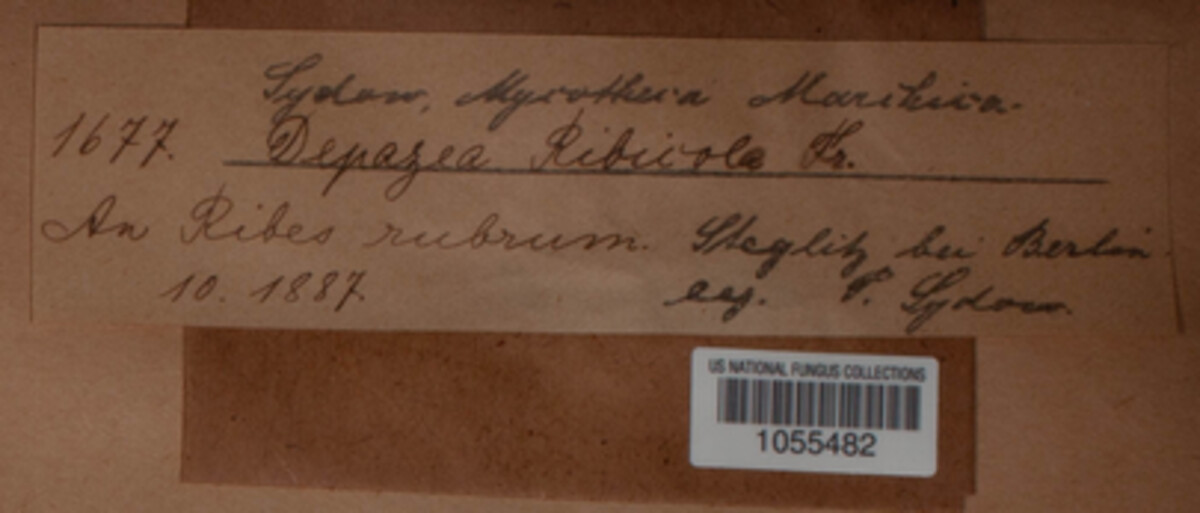 Sydow, Mycotheca Marchica.
1677. Depazea Ribicola Fr.
An Ribes rubrum. Steglitz bei Berlin.
10. 1887. leg. P. Sydow.
US NATIONAL FUNGUS COLLECTIONS
1055482